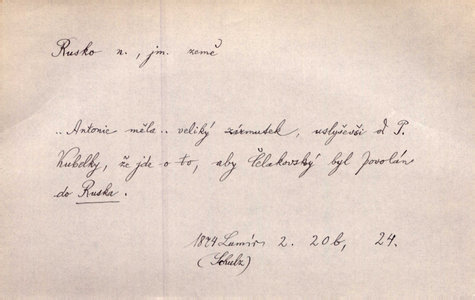 Rusko n., jm. země
.. Antonie měla .. veliký zármutek, uslyševši od P.
Kubelky, že jde o to, aby Čelakovský byl povolán
do Ruska.
1874 Lumír 2. 20b, 24.
(Schulz)